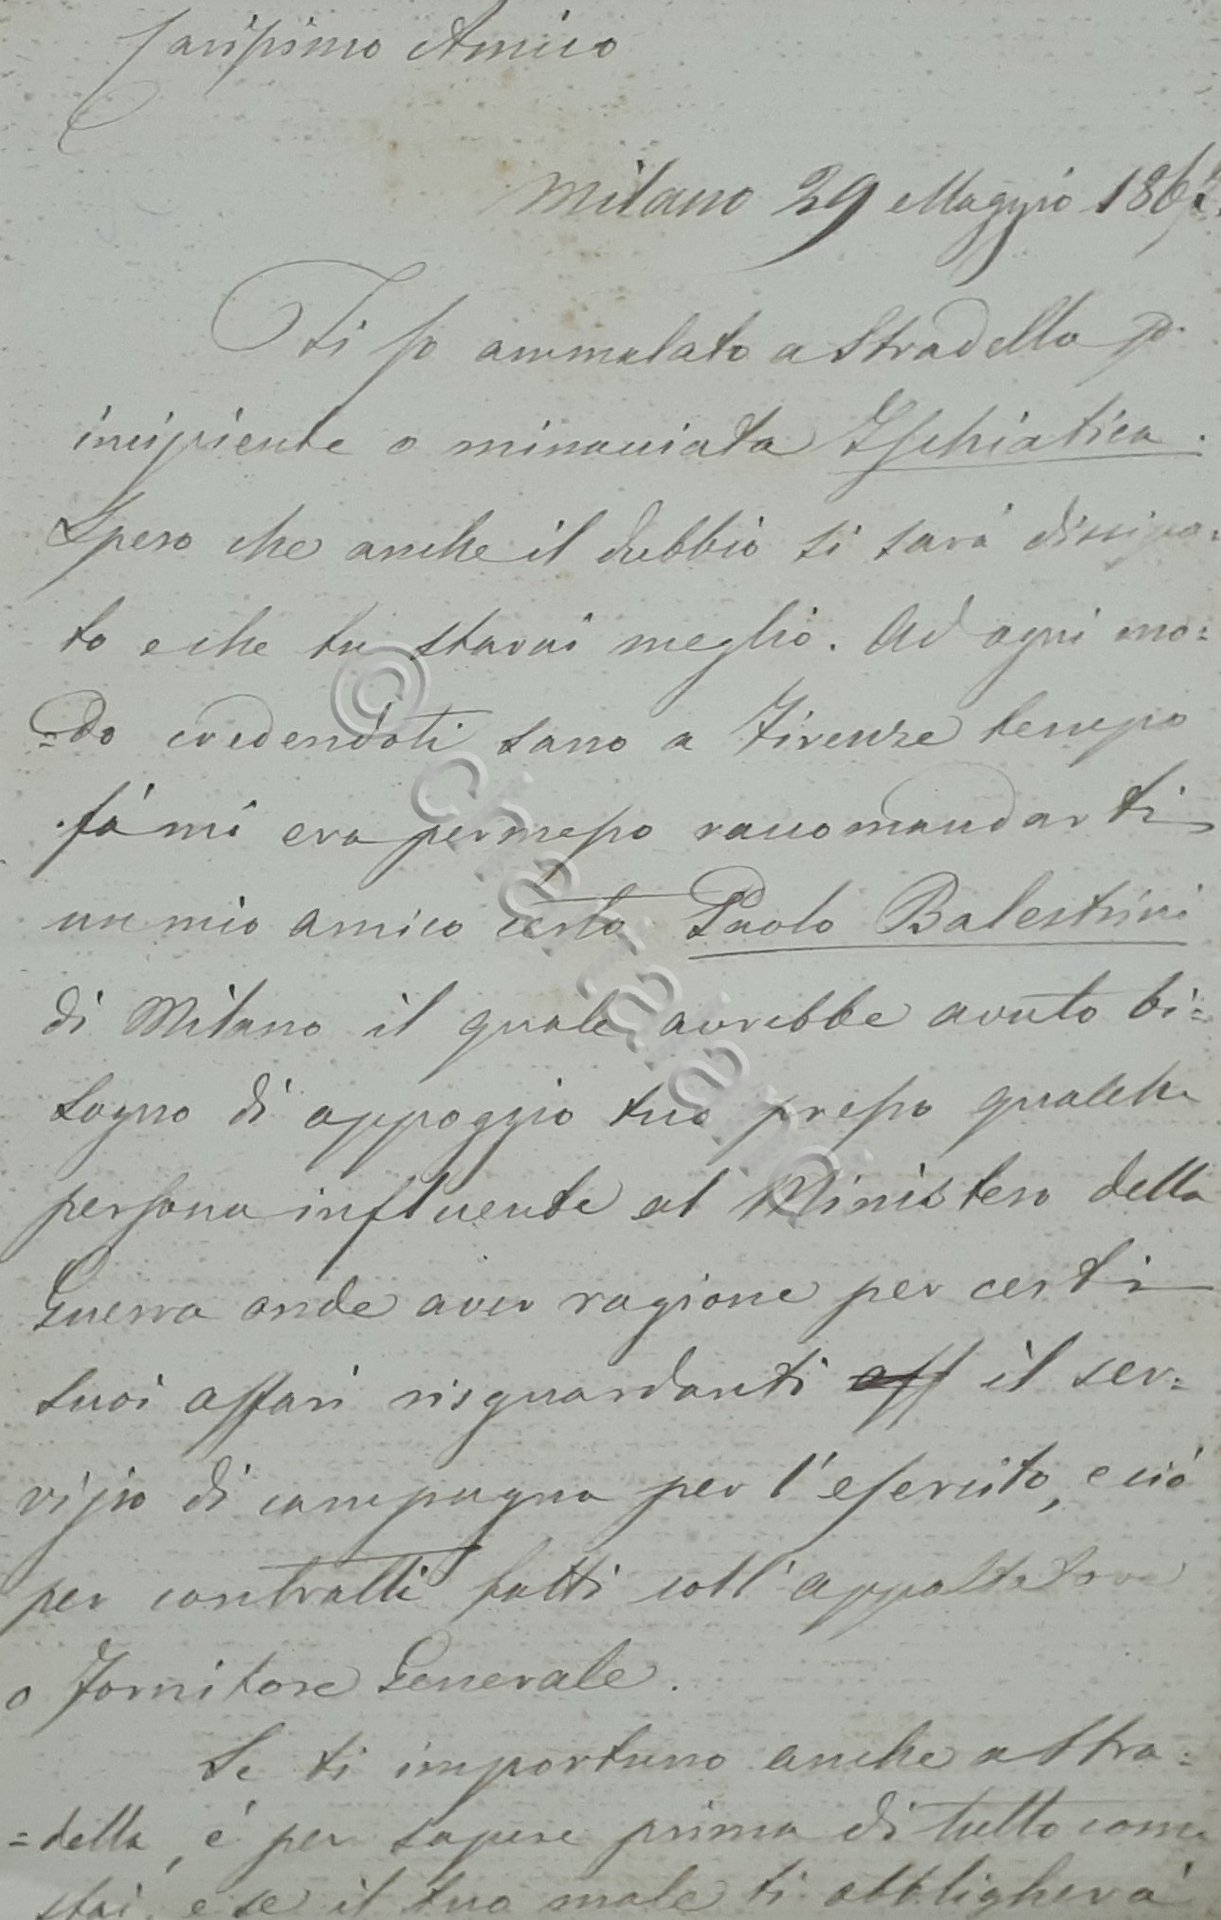 Carissimo Amico
Milano 29 Maggio 186
Ti so ammalato a Stradella p
incipiente o minacciata Ischiatica.
Spero che anche il dubbio si sarà dissipa=
to e che tu starai meglio. Ad ogni mo=
=do credendoti sano a Firenze tempo
fà mi era permesso raccomandarti
un mio amico certo Paolo Balestrini
di Milano il quale avrebbe avuto bi=
sogno di appoggio tuo presso qualche
persona influente al Ministero della
Guerra onde aver ragione per certi
suoi affari risguardanti aff il ser=
vizio di campagna per l'esercito, e ciò
per contratti fatti coll'appaltatore
o Fornitore Generale.
Se ti importuno anche a Stra=
=della, è per sapere prima di tutto come
stai, e se il tuo male ti obbligherà
© Charta